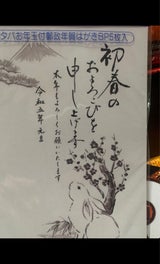 タバお年玉付郵政年賀はがきBP5枚入
初春の
およろこびを
申し上げます
本年もよろしくお願いいたします
令和五年元旦